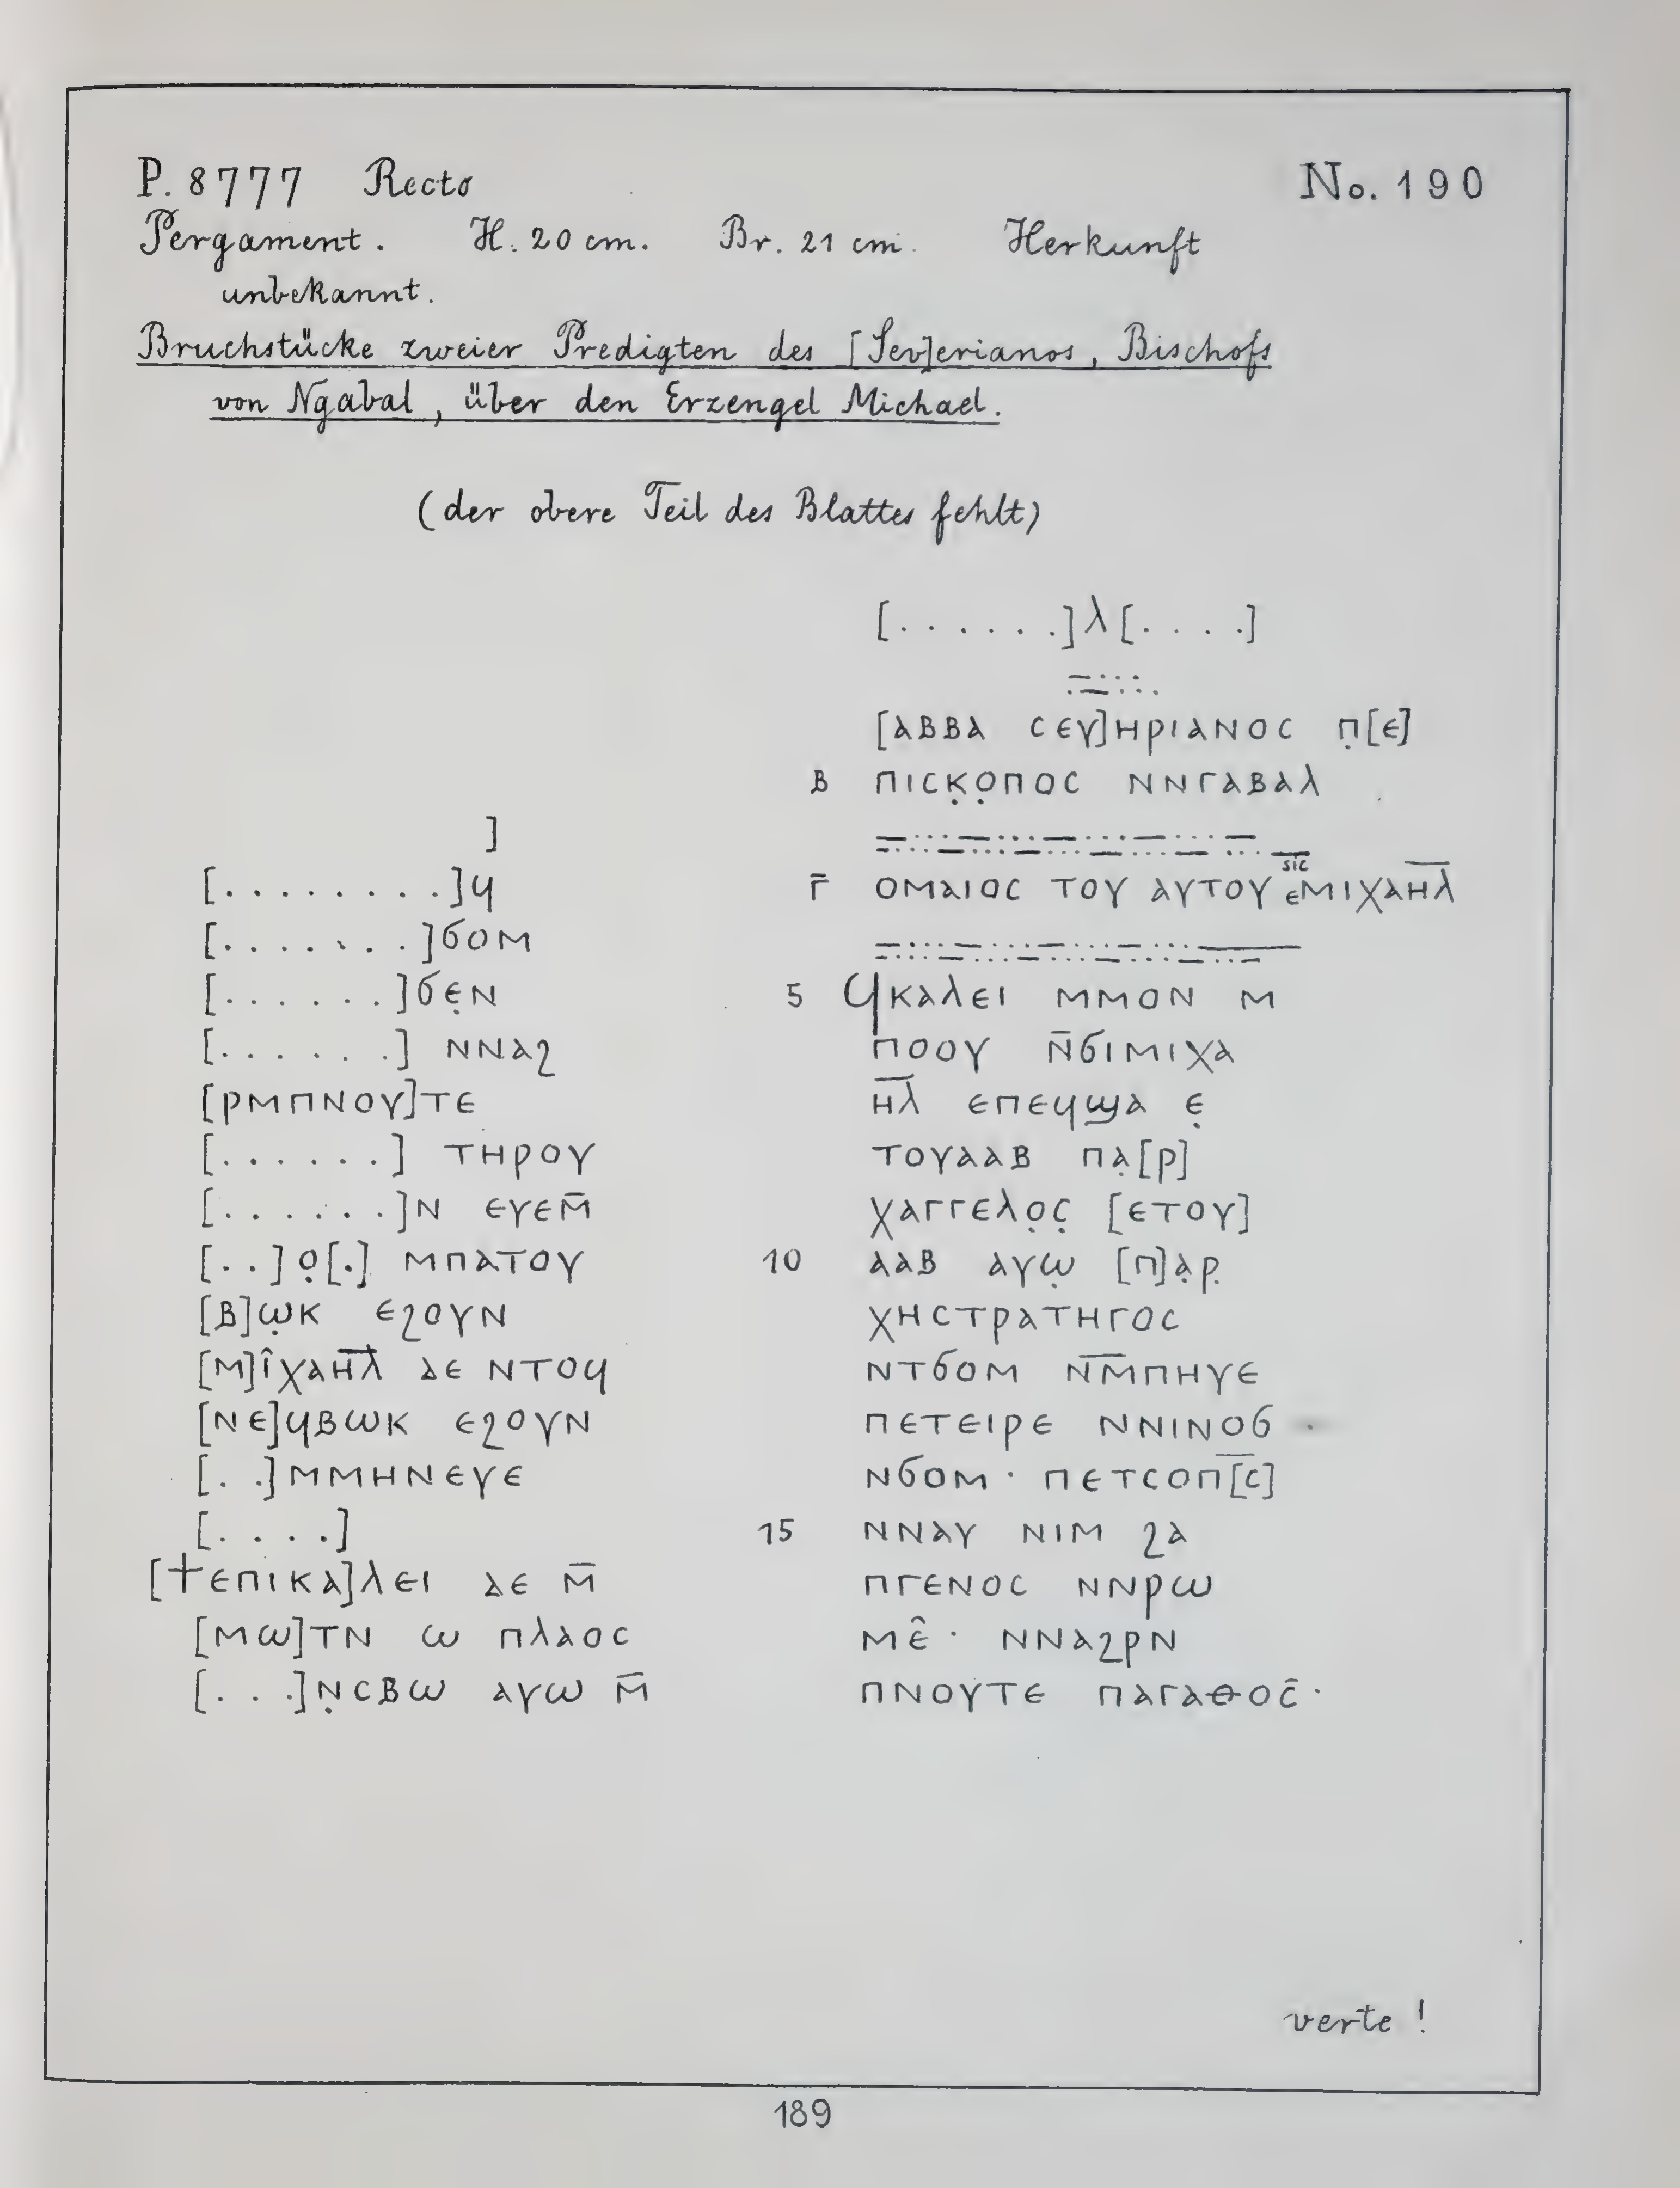 P. 8777 Recto No. 190
Pergament. H. 20 cm. Br. 21 cm. Herkunft
unbekannt.
Bruchstücke zweier Predigten des [Sev]erianos, Bischofs
von Ngabal, über den Erzengel Michael.
(der obere Teil des Blattes fehlt)
]
[. . . . . . . . .]ϥ
[. . . . . . . .]ϭⲟⲙ
[. . . . . . .]ϭⲉ̣ⲛ
[. . . . . . .] ⲛⲛⲁϩ
[ⲣⲙⲡⲛⲟⲩ]ⲧⲉ
[. . . . . .] ⲧⲏⲣⲟⲩ
[. . . . . . .]ⲛ ⲉⲩⲉⲙ̄
[. .]ⲟ̣[.] ⲙⲡⲁⲧⲟⲩ
[ⲃ]ⲱ̣ⲕ ⲉϩⲟⲩⲛ
[ⲙ]ⲓ̂ⲭⲁⲏ̅ⲗ̅ ⲇⲉ ⲛⲧⲟϥ
[ⲛⲉ]ϥⲃⲱⲕ ⲉϩⲟⲩⲛ
[. .]ⲙⲙⲏⲛⲉⲩⲉ
[. . . .]
[ϯⲉⲡⲓⲕⲁ]ⲗⲉⲓ ⲇⲉ ⲙ̄
[ⲙⲱ]ⲧⲛ ⲱ ⲡⲗⲁⲟⲥ
[. . .]ⲛ̣ⲥⲃⲱ ⲁⲩⲱ ⲙ̄
[. . . . . . .]ⲗ[. . . .]
[ⲁⲃⲃⲁ ⲥⲉⲩ]ⲏⲣⲓⲁⲛⲟⲥ ⲡ̣[ⲉ]
ⲃ ⲡⲓⲥⲕ̣ⲟ̣ⲡⲟⲥ ⲛⲛⲅⲁⲃⲁⲗ
ⲅ̄ ⲟⲙⲁⲓⲟⲥ ⲧⲟⲩ ⲁⲩⲧⲟⲩ sic ⲉⲙⲓⲭⲁⲏ̅ⲗ̅
5 ϥⲕⲁⲗⲉⲓ ⲙⲙⲟⲛ ⲙ
ⲡⲟⲟⲩ ⲛ̄ϭⲓⲙⲓⲭⲁ
ⲏ̅ⲗ̅ ⲉⲡⲉϥϣⲁ ⲉ̣
ⲧⲟⲩⲁⲁⲃ ⲡⲁ̣[ⲣ]
ⲭⲁⲅⲅⲉⲗⲟ̣ⲥ̣ [ⲉⲧⲟⲩ]
10 ⲁⲁⲃ ⲁⲩⲱ̣ [ⲡ]ⲁ̣ⲣ̣
ⲭⲏⲥⲧⲣⲁⲧⲏⲅⲟⲥ
ⲛⲧϭⲟⲙ ⲛ̅ⲙ̅ⲡⲏⲩⲉ
ⲡⲉⲧⲉⲓⲣⲉ ⲛⲛⲓⲛⲟϭ
ⲛϭⲟⲙ · ⲡⲉⲧⲥⲟⲡ̅[ⲥ̅]
15 ⲛⲛⲁⲩ ⲛⲓⲙ ϩⲁ
ⲡⲅⲉⲛⲟⲥ ⲛⲛⲣⲱ
ⲙⲉ̂ · ⲛⲛⲁϩⲣⲛ
ⲡⲛⲟⲩⲧⲉ ⲡⲁⲅⲁⲑⲟⲥ̄ ·
verte !
189